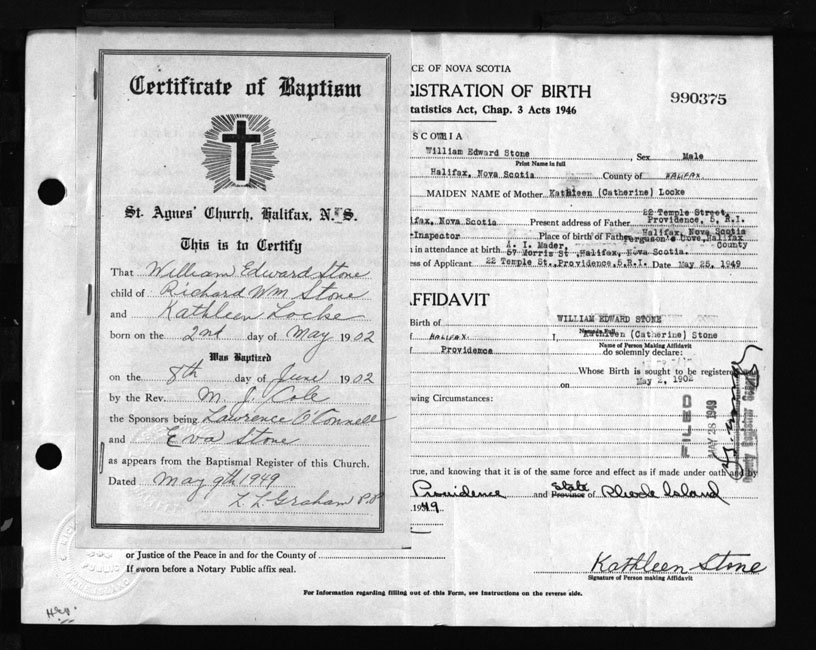 Certificate of Baptism
St. Agnes' Church, Halifax, N. S.
This is to Certify
That William Edward Stone
child of Richard Wm Stone
and Kathleen Locke
born on the 2nd day of May 1902
Was Baptized
on the 8th day of June 1902
by the Rev. M. J. Cole
the Sponsors being Lawrence O'Connell
and Eva Stone
as appears from the Baptismal Register of this Church.
Dated May 9th 1949
L. L. Graham P.P.
CE OF NOVA SCOTIA
GISTRATION OF BIRTH
990375
tatistics Act, Chap. 3 Acts 1946
SCOTIA
William Edward Stone, Sex Male
Print Name in full
Halifax, Nova Scotia County of HALIFAX
MAIDEN NAME of Mother Kathleen (Catherine) Locke
22 Temple Street,
ifax, Nova Scotia Present address of Father Providence, 5, R.I.
Halifax, Nova Scotia
-Inspector Place of birth of Father Ferguson's Cove, Halifax
County
n in attendance at birth A. I. Mader,
57 Morris St, Halifax, Nova Scotia.
ess of Applicant 22 Temple St., Providence, 5, R.I. Date May 25, 1949
AFFIDAVIT
Birth of WILLIAM EDWARD STONE
Name in Full
HALIFAX I, Kathleen (Catherine) Stone
Name of Person Making Affidavit
Providence do solemnly declare:
Whose Birth is sought to be registered
on May 2, 1902
wing Circumstances:
FILED
MAY 28 1949
Deputy Registrar General
true, and knowing that it is of the same force and effect as if made under oath and by
Providence and State Province of Rhode Island
1949
or Justice of the Peace in and for the County of
If sworn before a Notary Public affix seal.
Kathleen Stone
Signature of Person making Affidavit
For Information regarding filling out of this Form, see Instructions on the reverse side.